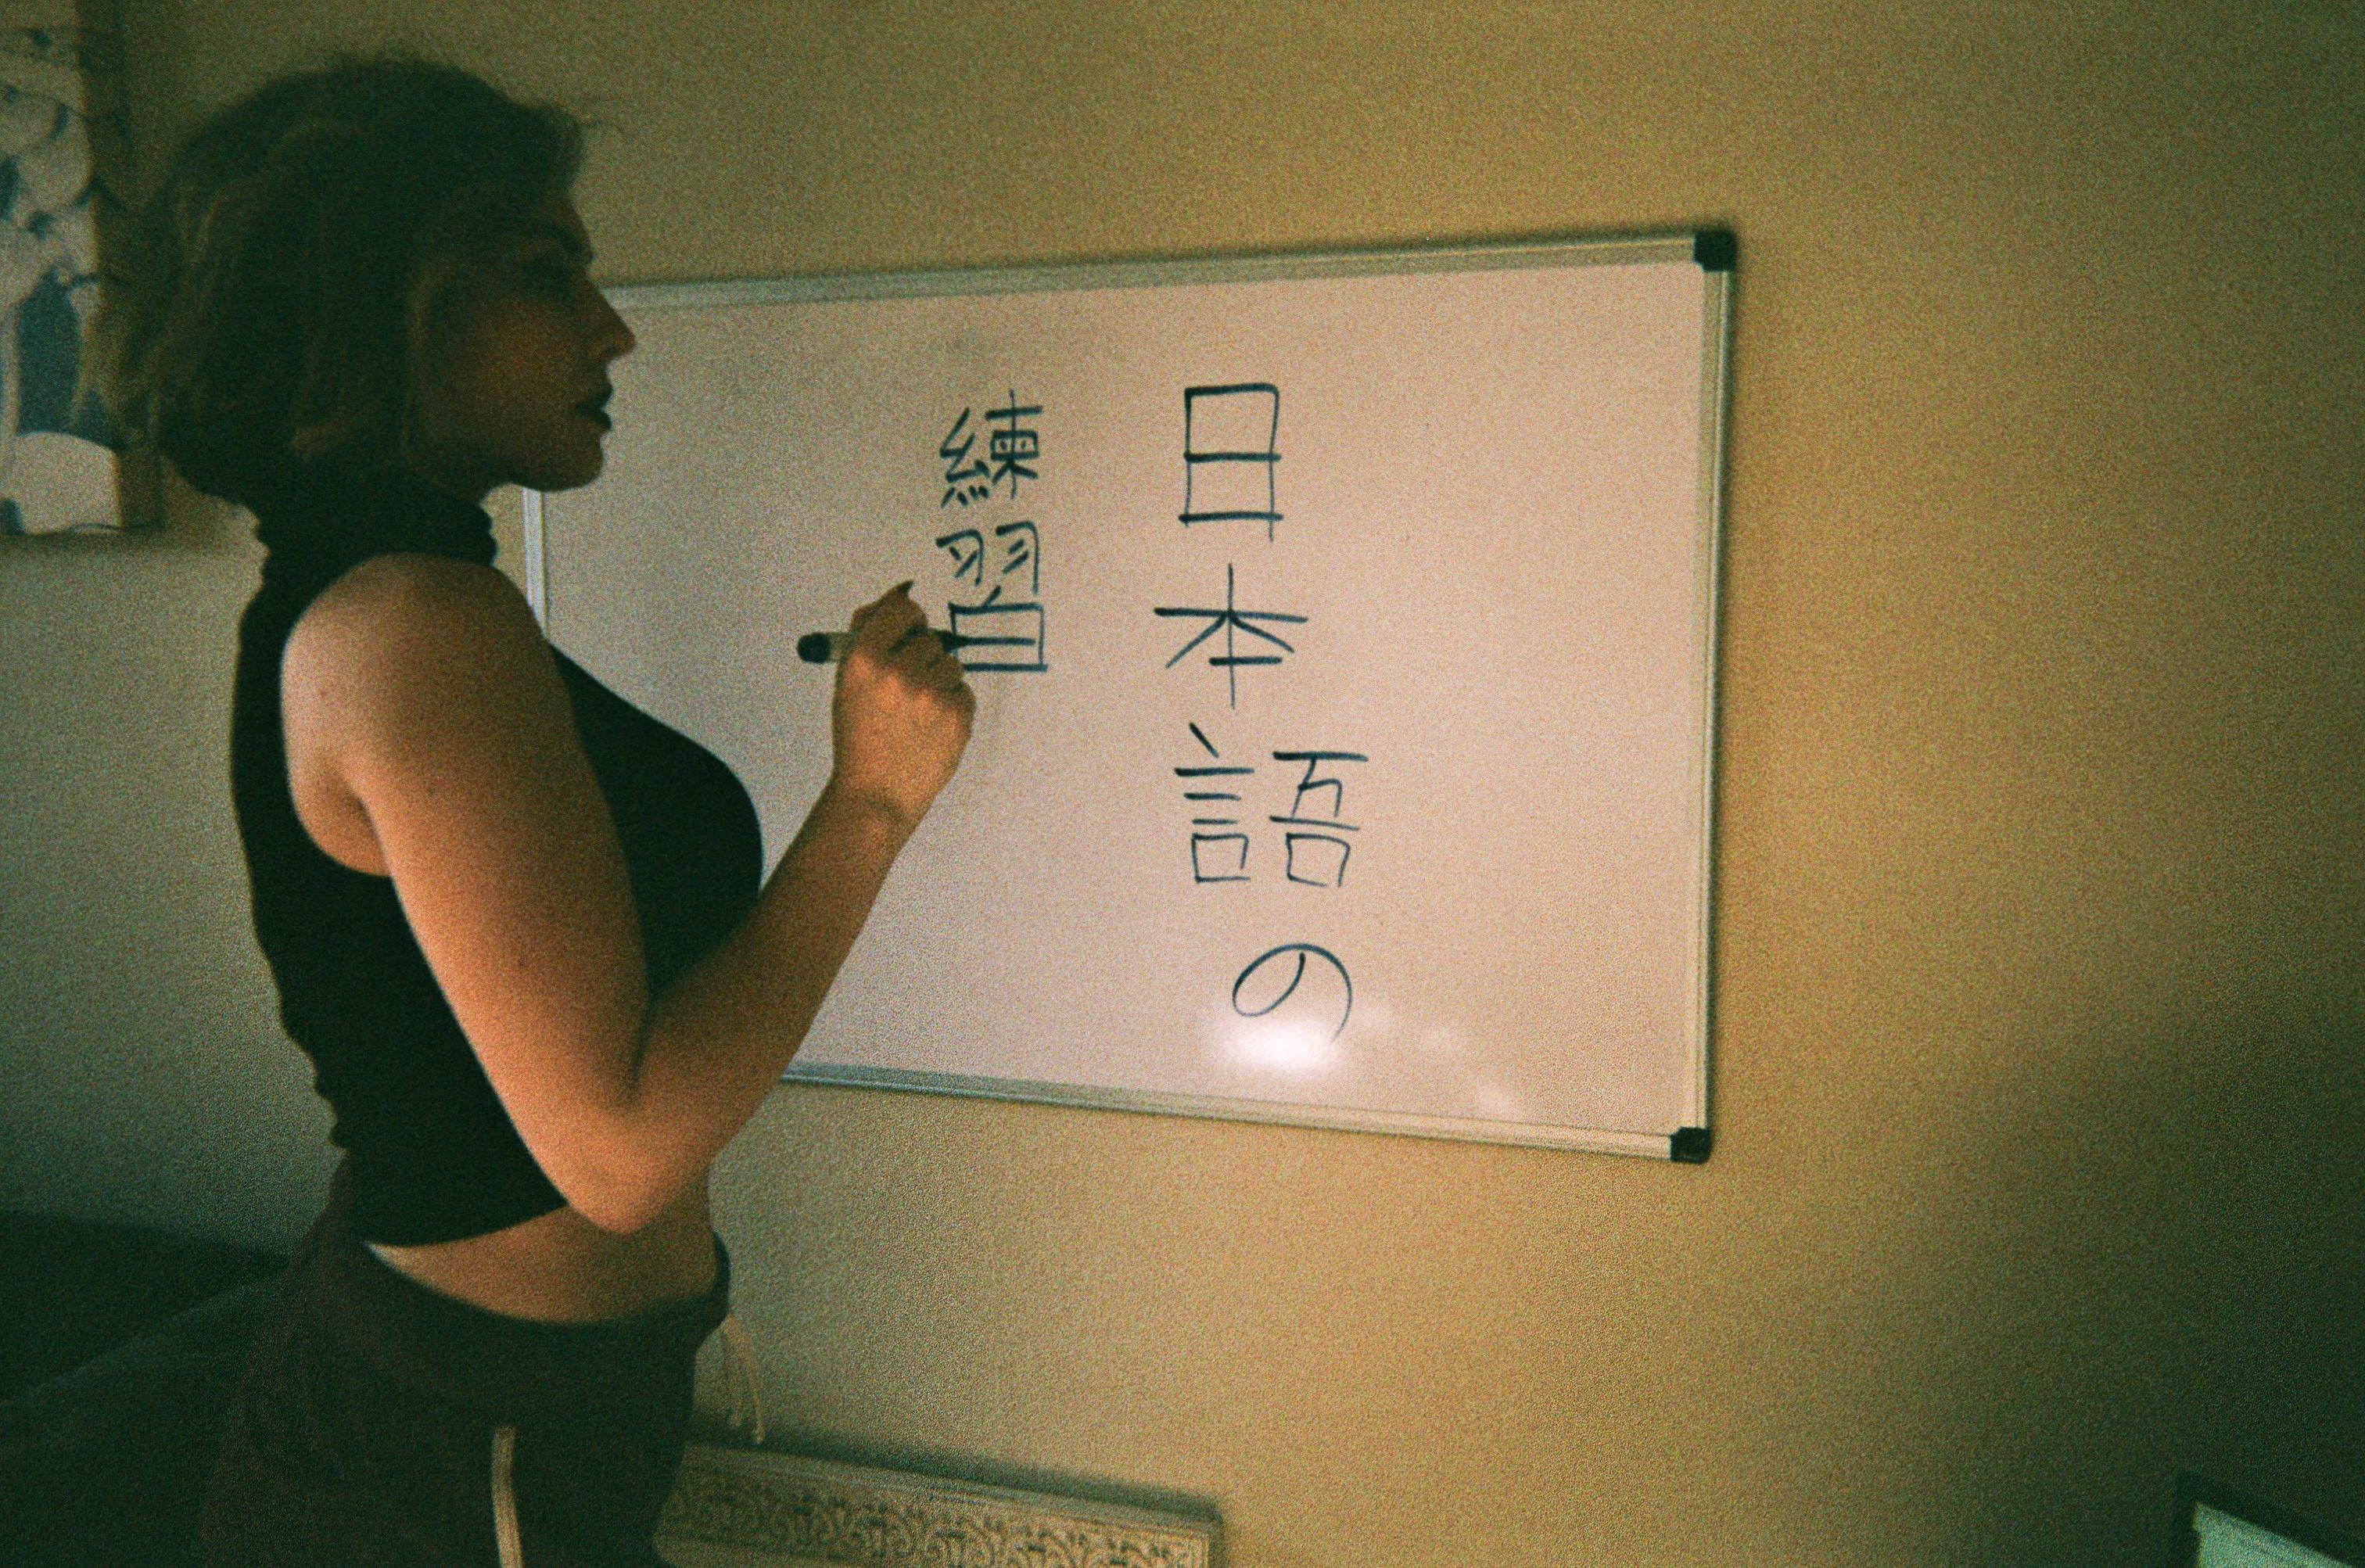 日本語の
練習